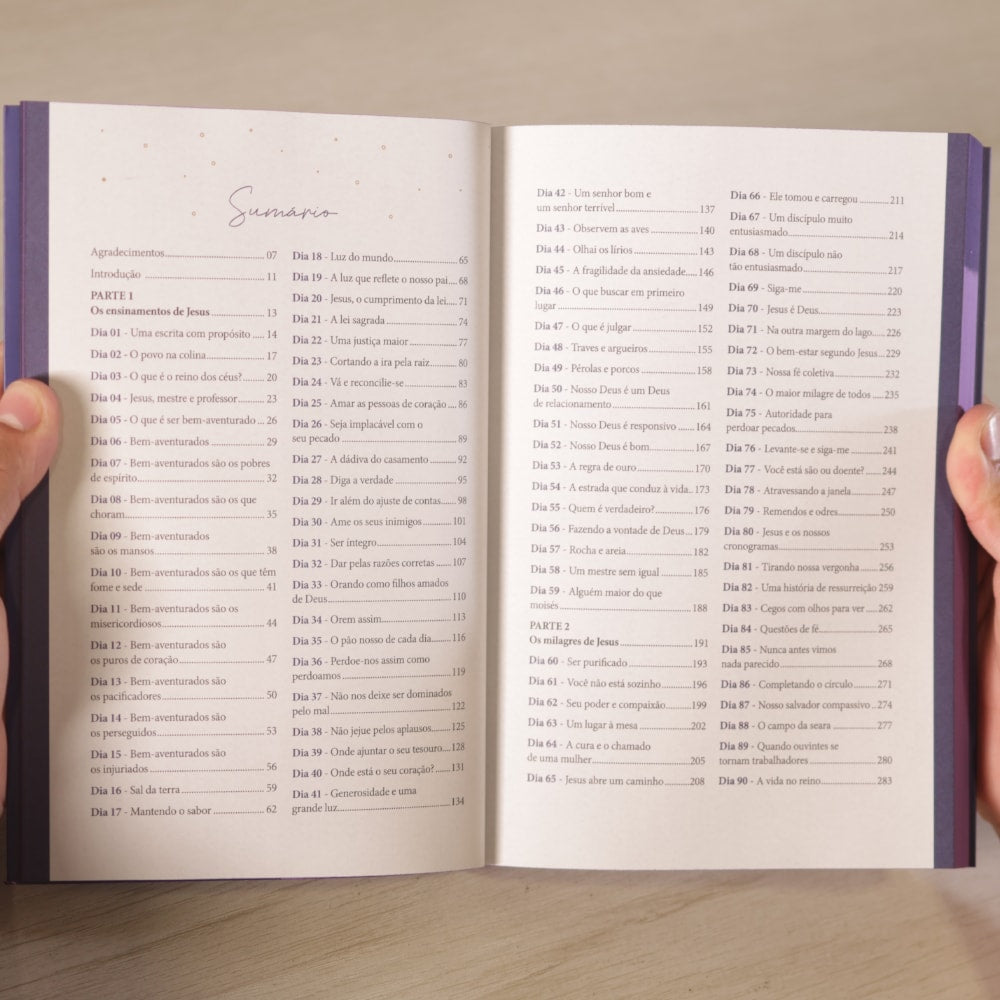 Sumário
Agradecimentos 07
Introdução 11
PARTE 1
Os ensinamentos de Jesus 13
Dia 01 - Uma escrita com propósito 14
Dia 02 - O povo na colina 17
Dia 03 - O que é o reino dos céus? 20
Dia 04 - Jesus, mestre e professor 23
Dia 05 - O que é ser bem-aventurado 26
Dia 06 - Bem-aventurados 29
Dia 07 - Bem-aventurados são os pobres
de espírito 32
Dia 08 - Bem-aventurados são os que
choram 35
Dia 09 - Bem-aventurados
são os mansos 38
Dia 10 - Bem-aventurados são os que têm
fome e sede 41
Dia 11 - Bem-aventurados são os
misericordiosos 44
Dia 12 - Bem-aventurados são
os puros de coração 47
Dia 13 - Bem-aventurados são
os pacificadores 50
Dia 14 - Bem-aventurados são
os perseguidos 53
Dia 15 - Bem-aventurados são
os injuriados 56
Dia 16 - Sal da terra 59
Dia 17 - Mantendo o sabor 62
Dia 18 - Luz do mundo 65
Dia 19 - A luz que reflete o nosso pai 68
Dia 20 - Jesus, o cumprimento da lei 71
Dia 21 - A lei sagrada 74
Dia 22 - Uma justiça maior 77
Dia 23 - Cortando a ira pela raiz 80
Dia 24 - Vá e reconcilie-se 83
Dia 25 - Amar as pessoas de coração 86
Dia 26 - Seja implacável com o
seu pecado 89
Dia 27 - A dádiva do casamento 92
Dia 28 - Diga a verdade 95
Dia 29 - Ir além do ajuste de contas 98
Dia 30 - Ame os seus inimigos 101
Dia 31 - Ser íntegro 104
Dia 32 - Dar pelas razões corretas 107
Dia 33 - Orando como filhos amados
de Deus 110
Dia 34 - Orem assim 113
Dia 35 - O pão nosso de cada dia 116
Dia 36 - Perdoe-nos assim como
perdoamos 119
Dia 37 - Não nos deixe ser dominados
pelo mal 122
Dia 38 - Não jejue pelos aplausos 125
Dia 39 - Onde ajuntar o seu tesouro 128
Dia 40 - Onde está o seu coração? 131
Dia 41 - Generosidade e uma
grande luz 134
Dia 42 - Um senhor bom e
um senhor terrível 137
Dia 43 - Observem as aves 140
Dia 44 - Olhai os lírios 143
Dia 45 - A fragilidade da ansiedade 146
Dia 46 - O que buscar em primeiro
lugar 149
Dia 47 - O que é julgar 152
Dia 48 - Traves e argueiros 155
Dia 49 - Pérolas e porcos 158
Dia 50 - Nosso Deus é um Deus
de relacionamento 161
Dia 51 - Nosso Deus é responsivo 164
Dia 52 - Nosso Deus é bom 167
Dia 53 - A regra de ouro 170
Dia 54 - A estrada que conduz à vida 173
Dia 55 - Quem é verdadeiro? 176
Dia 56 - Fazendo a vontade de Deus 179
Dia 57 - Rocha e areia 182
Dia 58 - Um mestre sem igual 185
Dia 59 - Alguém maior do que
moisés 188
PARTE 2
Os milagres de Jesus 191
Dia 60 - Ser purificado 193
Dia 61 - Você não está sozinho 196
Dia 62 - Seu poder e compaixão 199
Dia 63 - Um lugar à mesa 202
Dia 64 - A cura e o chamado
de uma mulher 205
Dia 65 - Jesus abre um caminho 208
Dia 66 - Ele tomou e carregou 211
Dia 67 - Um discípulo muito
entusiasmado 214
Dia 68 - Um discípulo não
tão entusiasmado 217
Dia 69 - Siga-me 220
Dia 70 - Jesus é Deus 223
Dia 71 - Na outra margem do lago 226
Dia 72 - O bem-estar segundo Jesus 229
Dia 73 - Nossa fé coletiva 232
Dia 74 - O maior milagre de todos 235
Dia 75 - Autoridade para
perdoar pecados 238
Dia 76 - Levante-se e siga-me 241
Dia 77 - Você está são ou doente? 244
Dia 78 - Atravessando a janela 247
Dia 79 - Remendos e odres 250
Dia 80 - Jesus e os nossos
cronogramas 253
Dia 81 - Tirando nossa vergonha 256
Dia 82 - Uma história de ressurreição 259
Dia 83 - Cegos com olhos para ver 262
Dia 84 - Questões de fé 265
Dia 85 - Nunca antes vimos
nada parecido 268
Dia 86 - Completando o círculo 271
Dia 87 - Nosso salvador compassivo 274
Dia 88 - O campo da seara 277
Dia 89 - Quando ouvintes se
tornam trabalhadores 280
Dia 90 - A vida no reino 283